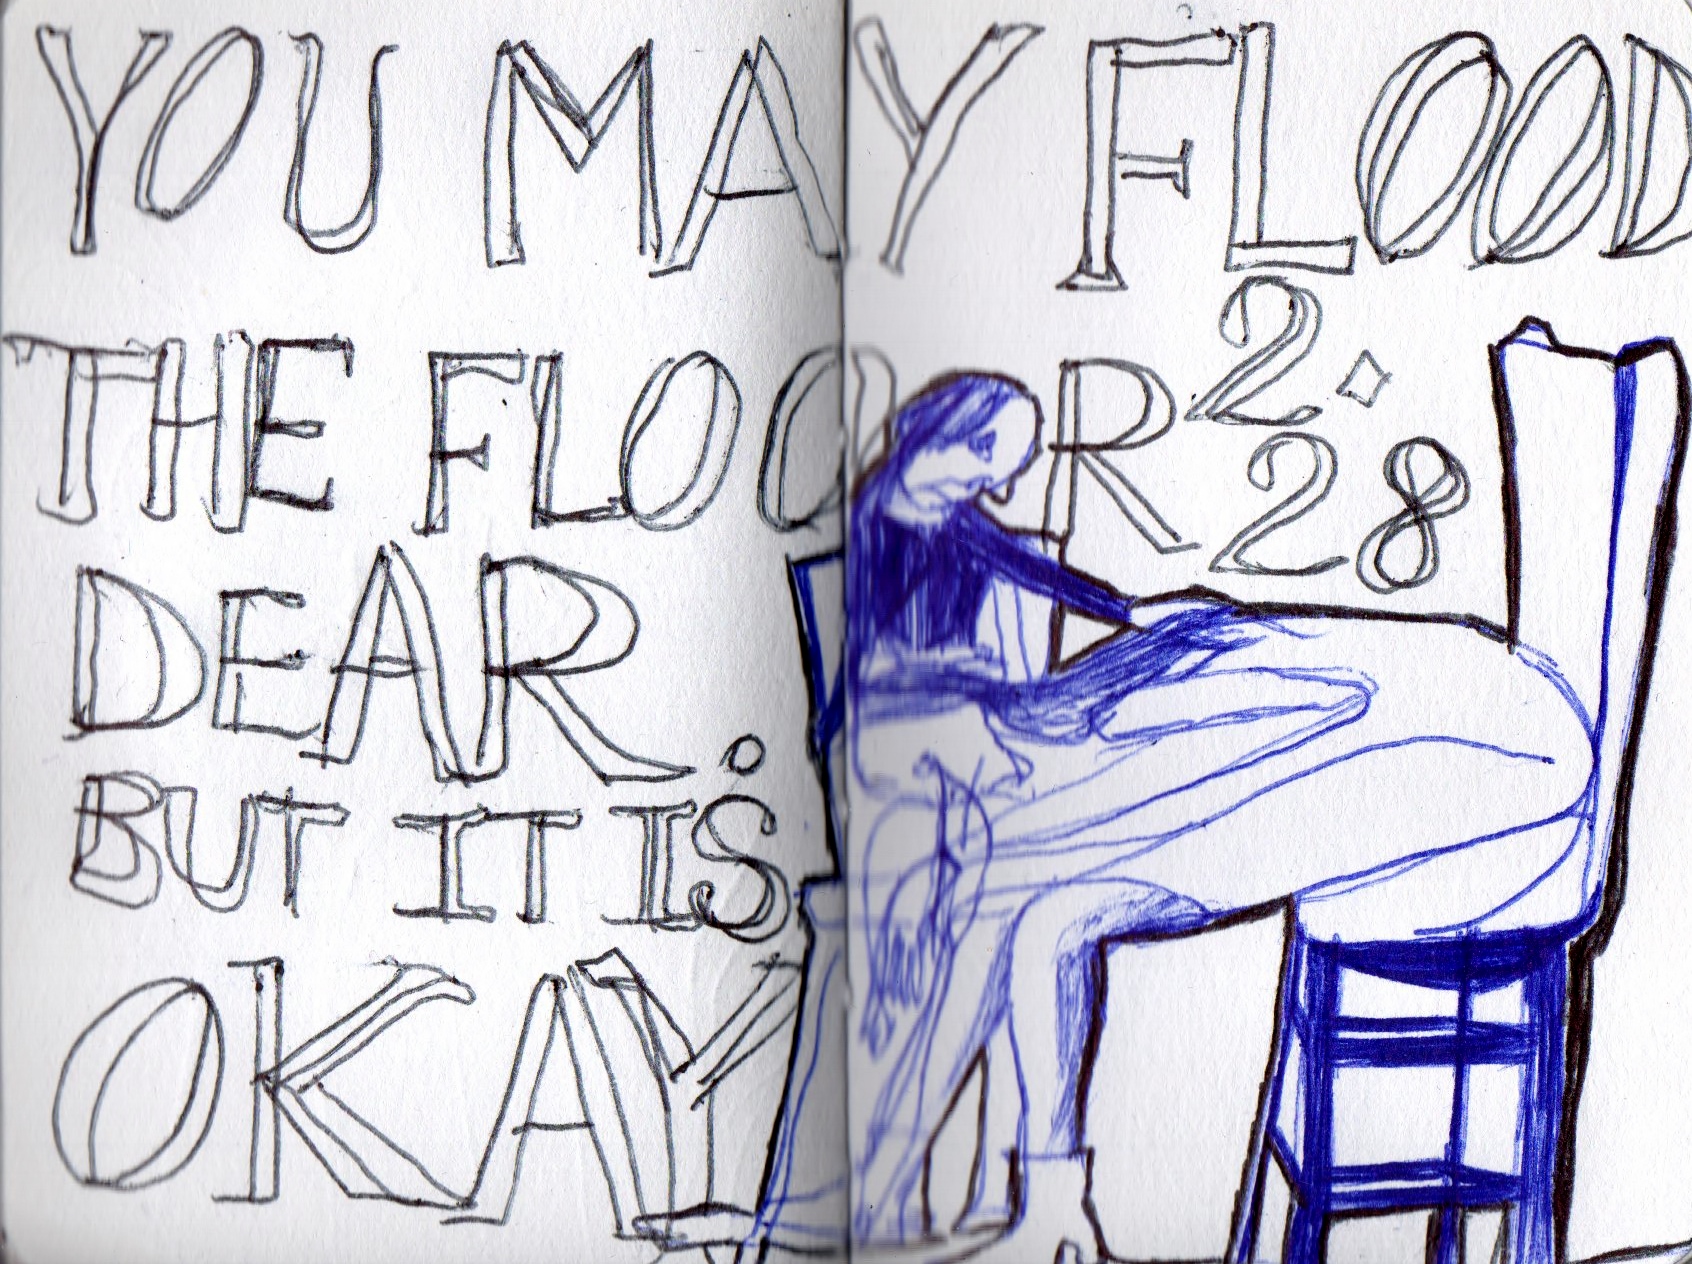 YOU MAY FLOOD
THE FLOOR
2.
28
DEAR.
BUT IT IS
OKAY